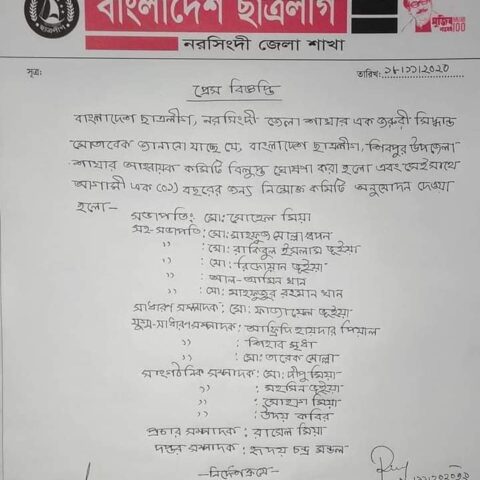 বাংলাদেশ ছাত্রলীগ
নরসিংদী জেলা শাখা
সূত্র:
তারিখ: ১৮/১১/২০২০
প্রেস বিজ্ঞপ্তি
বাংলাদেশ ছাত্রলীগ, নরসিংদী জেলা শাখার এক জরুরী সিদ্ধান্ত
মোতাবেক জানানো যাচ্ছে যে, বাংলাদেশ ছাত্রলীগ, শিবপুর উপজেলা
শাখার আহ্বায়ক কমিটি বিলুপ্ত ঘোষণা করা হলো এবং সেই সাথে
আগামী এক (০১) বছরের জন্য নিম্নোক্ত কমিটি অনুমোদন দেওয়া
হলো—
সভাপতি: মো: সোহেল মিয়া
সহ-সভাপতি: মো: মাহফুজ মোল্লা
" : মো: রাকিবুল ইসলাম ভূইয়া
" : মো: রিদোয়ান ভূইয়া
" : আল-আমিন খান
" : মো: মাহফুজুর রহমান খান
সাধারণ সম্পাদক: মো: ভূইয়া
যুগ্ম-সাধারণ সম্পাদক: আফ্রিদি হায়দার পিয়াল
" : শিহাব মৃধা
" : মো: তারেক মোল্লা
সাংগঠনিক সম্পাদক: মো: দীপু মিয়া
" : মহসিন ভূইয়া
" : সোহাগ মিয়া
" : উদয় কবির
প্রচার সম্পাদক: রাসেল মিয়া
দপ্তর সম্পাদক: হৃদয় চন্দ্র মন্ডল
—নির্দেশক্রমে—